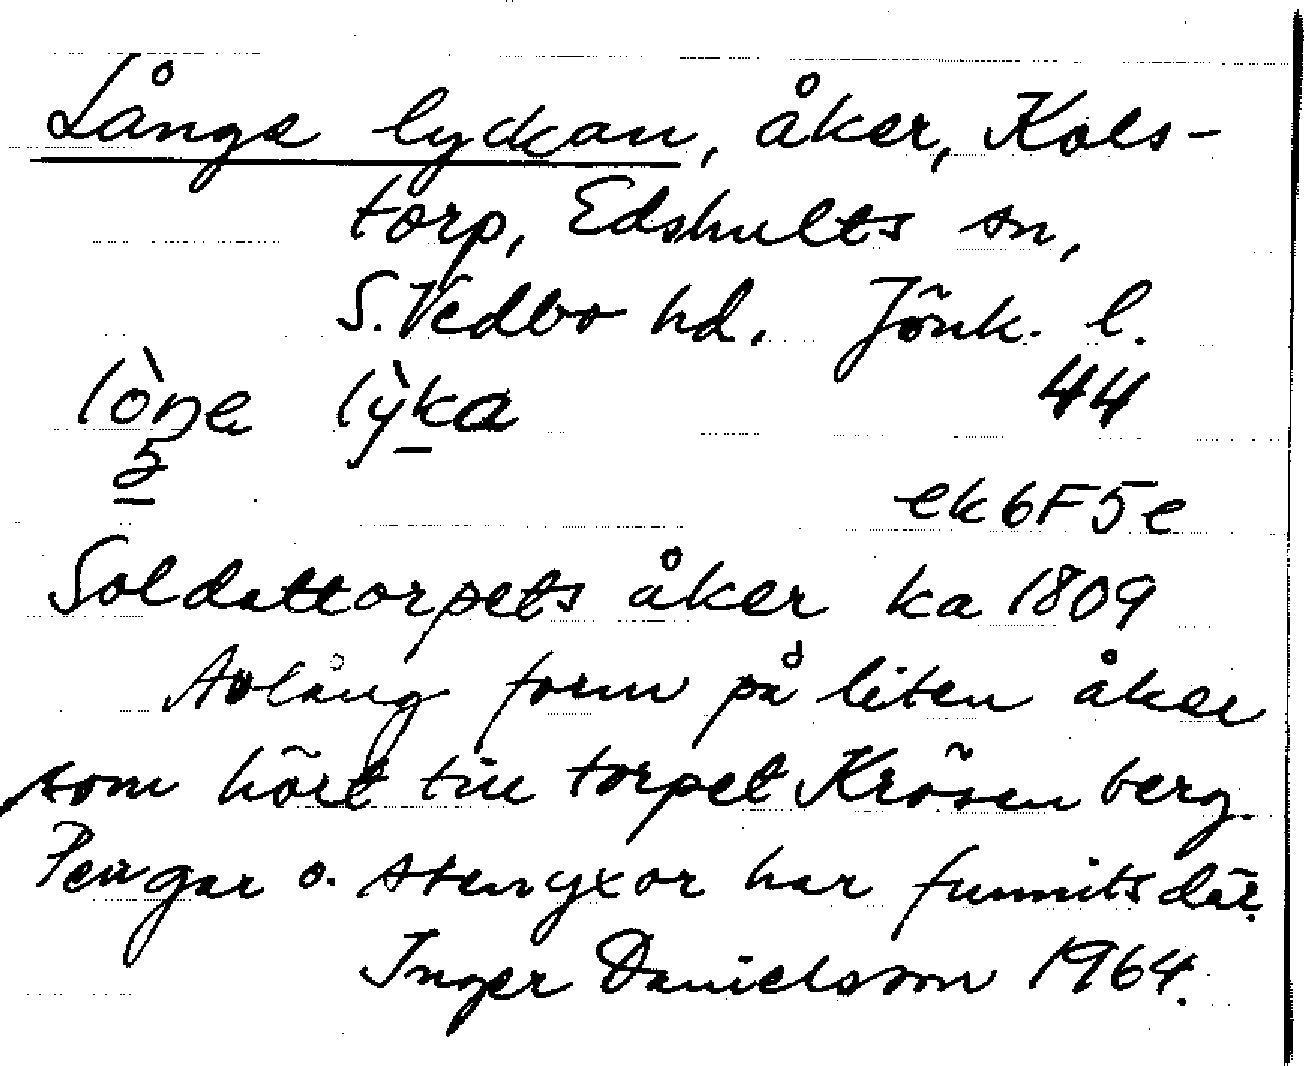 Långa lyckan, åker, Kols-
torp, Edshults sn,
S. Vedbo hd. Jönk. l.
lòŋa lỳka 44
5
ek6F5e
Soldattorpets åker ka 1809
Avlång form på liten åker
som hört till torpet Krösenberg.
Pengar o. stenyxor har funnits där.
Inger Danielsson 1964.